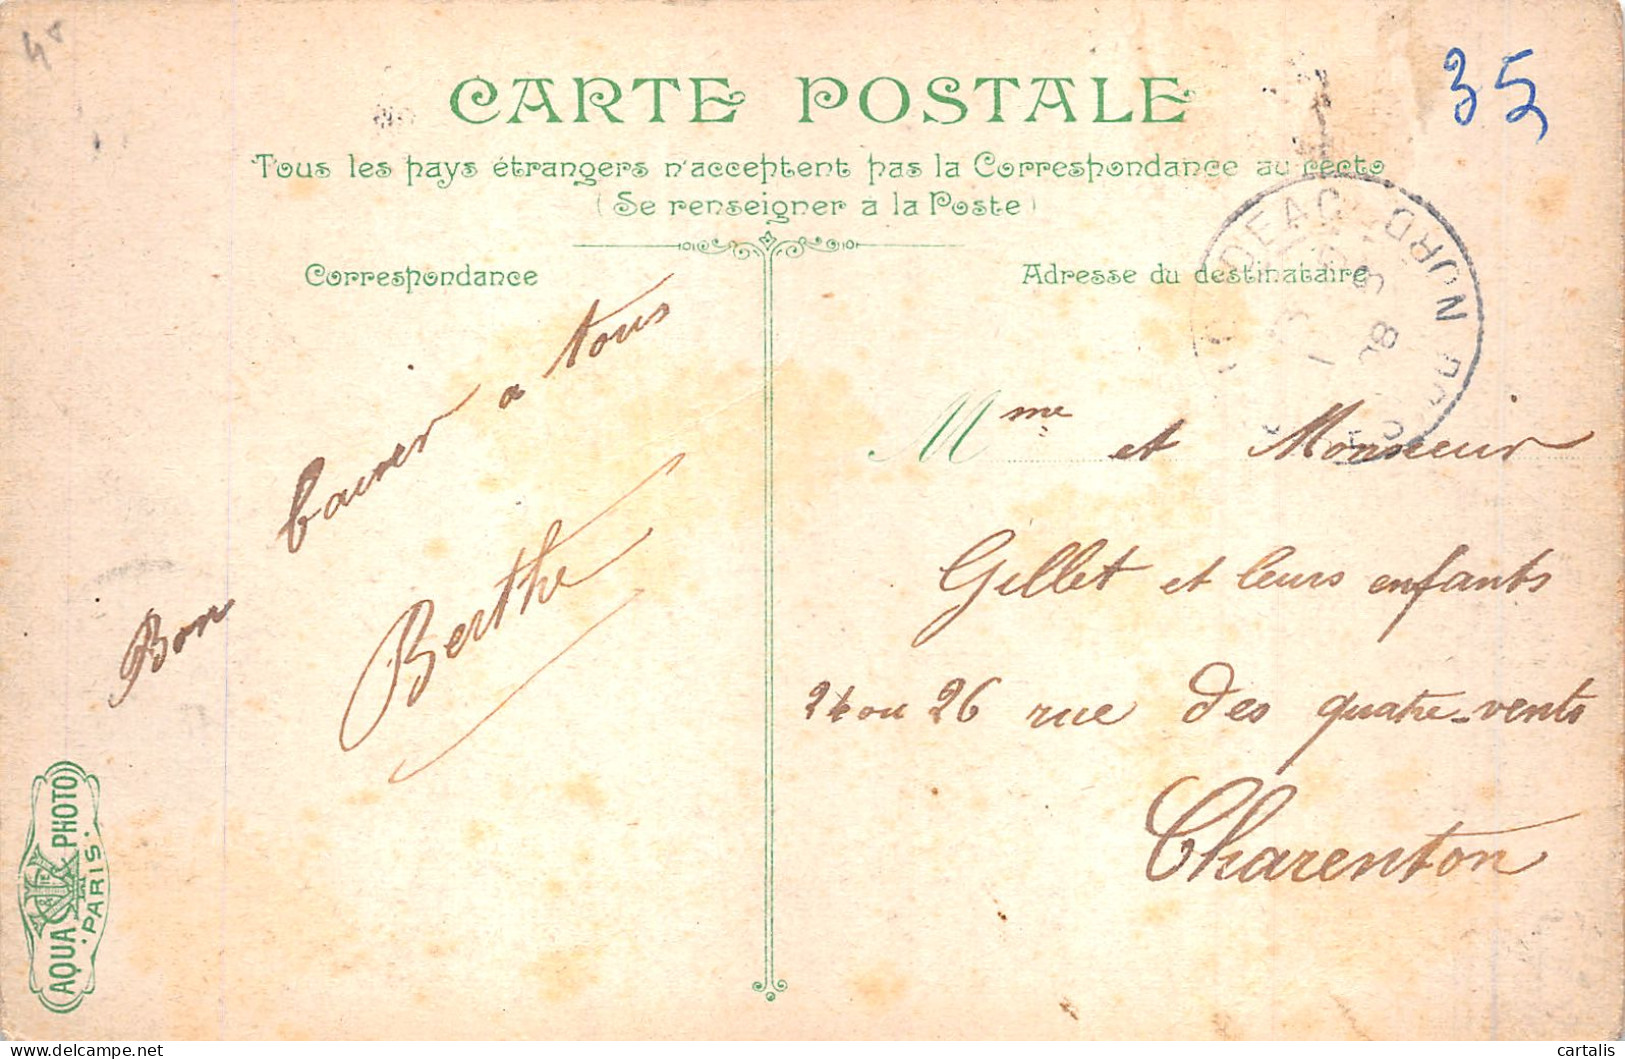 4
35
CARTE POSTALE
Tous les pays étrangers n'acceptent pas la Correspondance au recto
(Se renseigner à la Poste)
Correspondance
Adresse du destinataire
Bon baiser a tous
Berthe
Mme et Monsieur
Gillet et leurs enfants
24 ou 26 rue des quatre-vents
Charenton
AQUA PHOTO
PARIS
cartalis